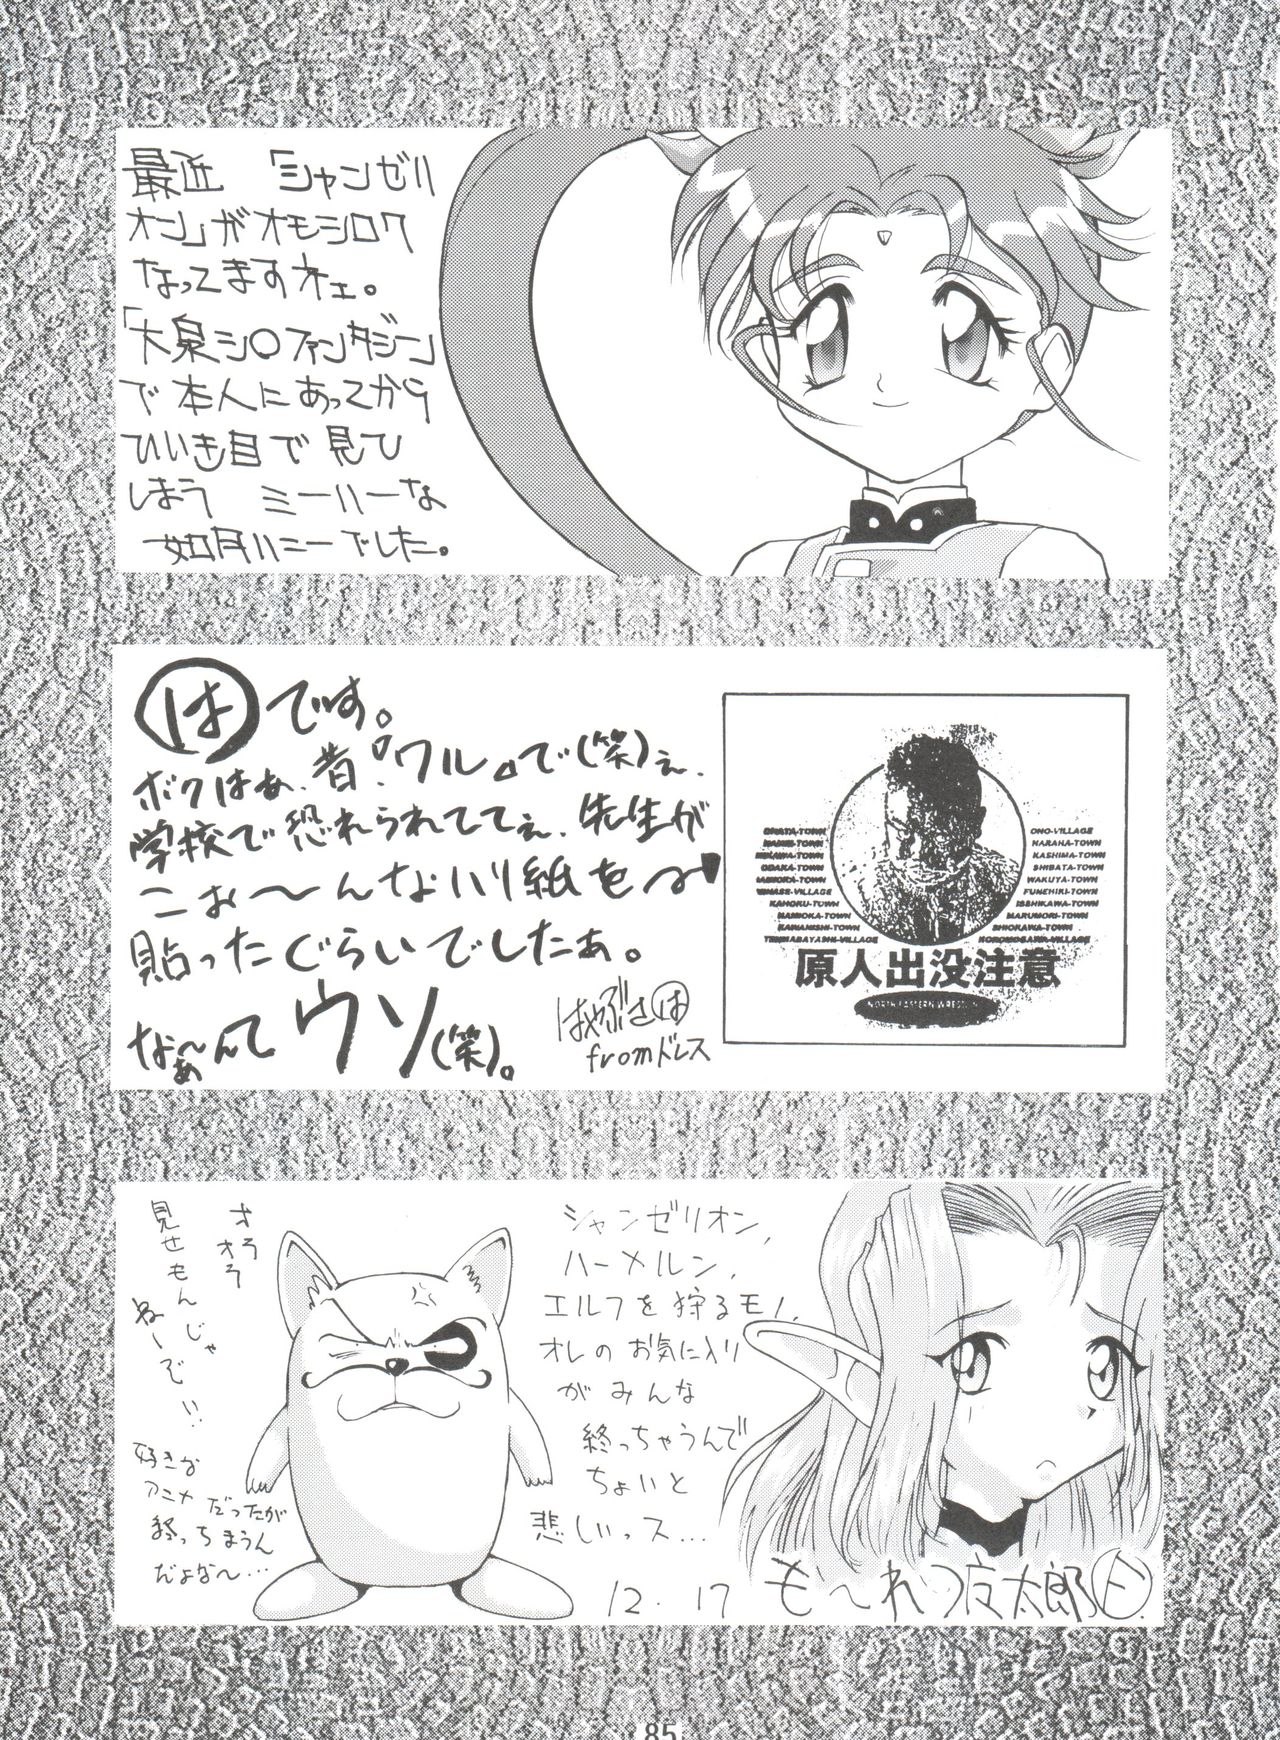 最近 「シャンゼリ
オン」が オモシロク
なってますネェ。
「大泉シ〇ファンタジー」
で 本人に あってから
ひいき目で 見ひ
しまう ミーハーな
如月ハニーでした。
は です。
ボクはぁ、昔『ワル』で(笑)ぇ、
学校で恐れられててぇ、先生が
こぉ〜んなハリ紙を
貼ったぐらいでしたぁ。
なぁ〜んて ウソ(笑)。
はやぶさは
fromドレス
ONO-VILLAGE
NARAHA-TOWN
KASHIMA-TOWN
ODAKA-TOWN
SHIBATA-TOWN
WAKUYA-TOWN
FUNEHIKI-TOWN
KAHOKU-TOWN
ISSHIKAWA-TOWN
NAMIOKA-TOWN
MARUMORI-TOWN
KAWANISHI-TOWN
SHIOKAWA-TOWN
TENNABAYASHI-VILLAGE
原人出没注意
NORTH EASTERN WRESTLIN
オラオラ
見せもんじゃ
ねーでい!!
好きな
アニメだったが
終っちまうん
だよな〜…
シャンゼリオン,
ハーメルン,
エルフを狩るモノ,
オレの お気に入り
が みんな
終っちゃうんで
ちょいと
悲しいっス…
12.17
も〜れつ 太郎
85